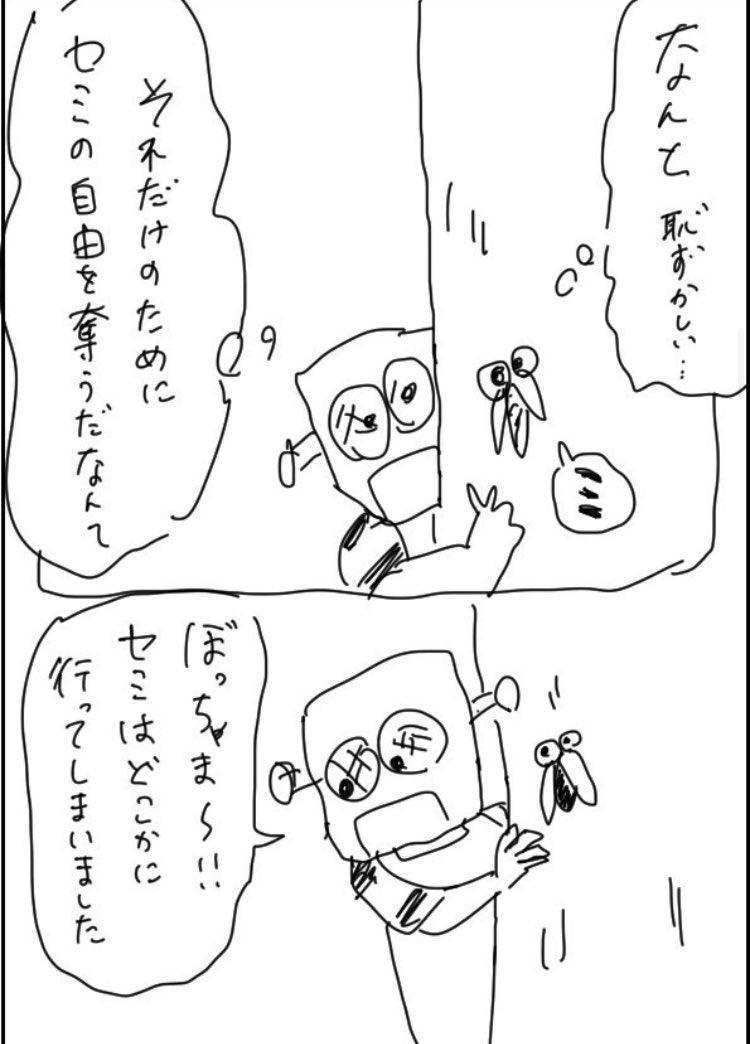 なんと
恥ずかしい…
それだけのために
セミの自由を奪うだなんて
ぼっちゃま～!!
セミはどこかに
行ってしまいました